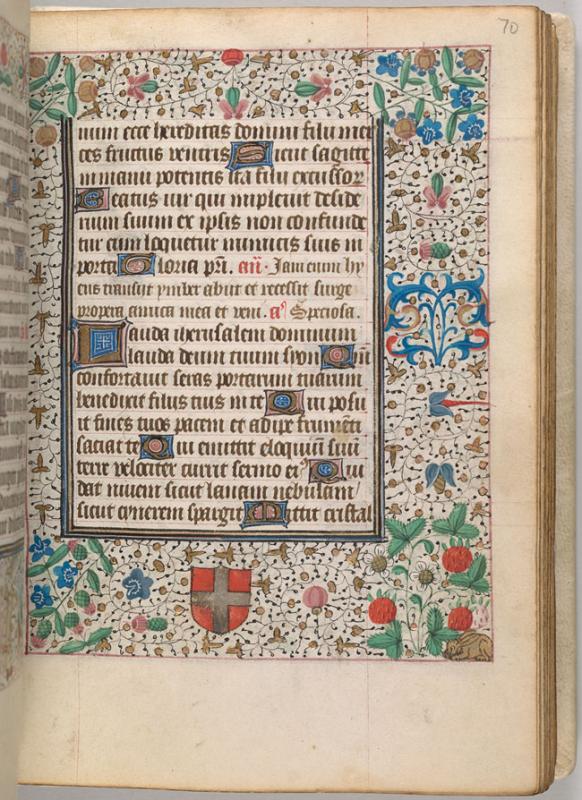 70
num ecce hereditas domini filii mer
ces fructus ventris Sicut sagitte
in manu potentis ita filii excussor
Beatus vir qui implevit deside
rium suum ex ipsis non confunde
tur cum loquetur inimicis suis in
porta Gloria pri. añ. Jam enim hy
ems transijt ymber abijt et recessit surge
propera amica mea et veni. a Speciosa.
Lauda iherusalem dominum
lauda deum tuum syon Qm̃
confortavit seras portarum tuarum
benedixit filijs tuis in te Qui posu
it fines tuos pacem et adipe frumẽti
saciat te Qui emittit eloquiũ suũ
terre velociter currit sermo eiꝰ Qui
dat nivem sicut lanam nebulam
sicut cynerem spargit Mittit cristal